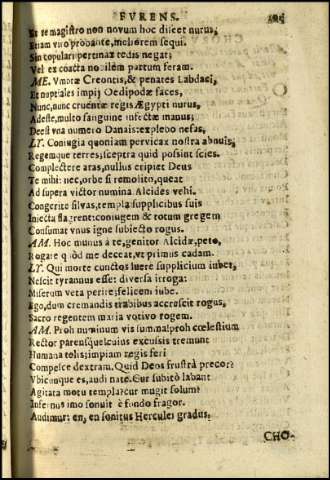 FVRENS.
Et te magistro non novum hoc discet nurus,
Etiam viro probante, meliorem sequi.
Sin copulari pertinax tedis negat;
Vel ex coacta nobilem partum feram.
ME. Vmbræ Creontis, & penates Labdaci,
Et nuptiales impij Oedipodæ faces,
Nunc, nunc cruentæ regis Ægypti nurus,
Adeste, multo sanguine infectæ manus;
Deest vna numero Danais: explebo nefas,
LY. Coniugia quoniam pervicax nostra abnuis,
Regemque terres; sceptra quid possint scies.
Complectere aras, nullus eripiet Deus
Te mihi: nec, orbe si remolito, queat
Ad supera victor numina Alcides vehi.
Congerite silvas, templa supplicibus suis
Iniecta flagrent: coniugem & totum gregem
Consumat vnus igne subiecto rogus.
AM. Hoc munus à te, genitor Alcidæ, peto,
Rogare quòd me deceat, vt primus cadam.
LY. Qui morte cunctos luere supplicium iubet,
Nescit tyrannus esse: diversa irroga:
Miserum veta perire: felicem iube.
Ego, dum cremandis trabibus accrescit rogus,
Sacro regentem maria votivo rogem.
AM. Proh numinum vis summa! proh cœlestium
Rector parensque! cuius excussis tremunt
Humana telis; impiam regis feri
Compesce dextram. Quid Deos frustrà precor?
Vbicunque es, audi nate. Cur subitò labant
Agitata motu templa? cur mugit solum?
Infernus imo sonuit è fundo fragor.
Audimur: en, en sonitus Herculei gradus.
CHO-